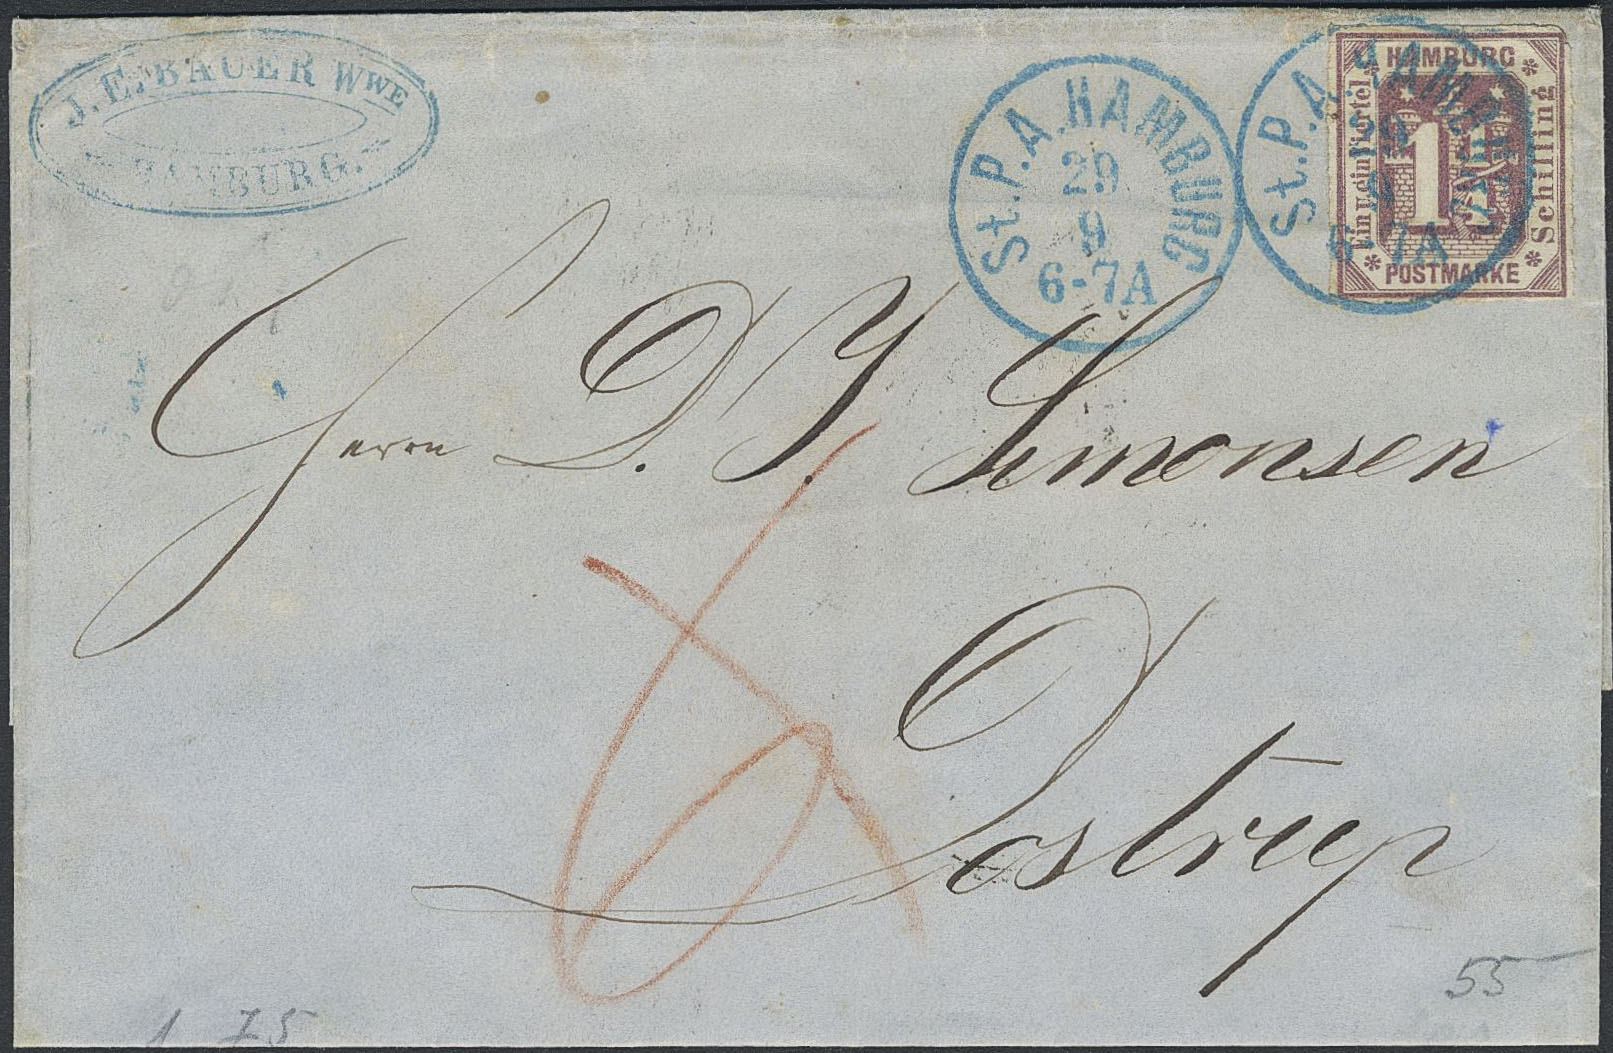 J. E. BAUER WWE
HAMBURG.
St. P. A. HAMBURG
29
9
6-7A
St. P. A. HAMBURG
29
9
6-7A
HAMBURG
Ein u. ein Viertel
1¼
Schilling
POSTMARKE
Herrn D. J. Simonsen
Dostrup
6
55
1 75